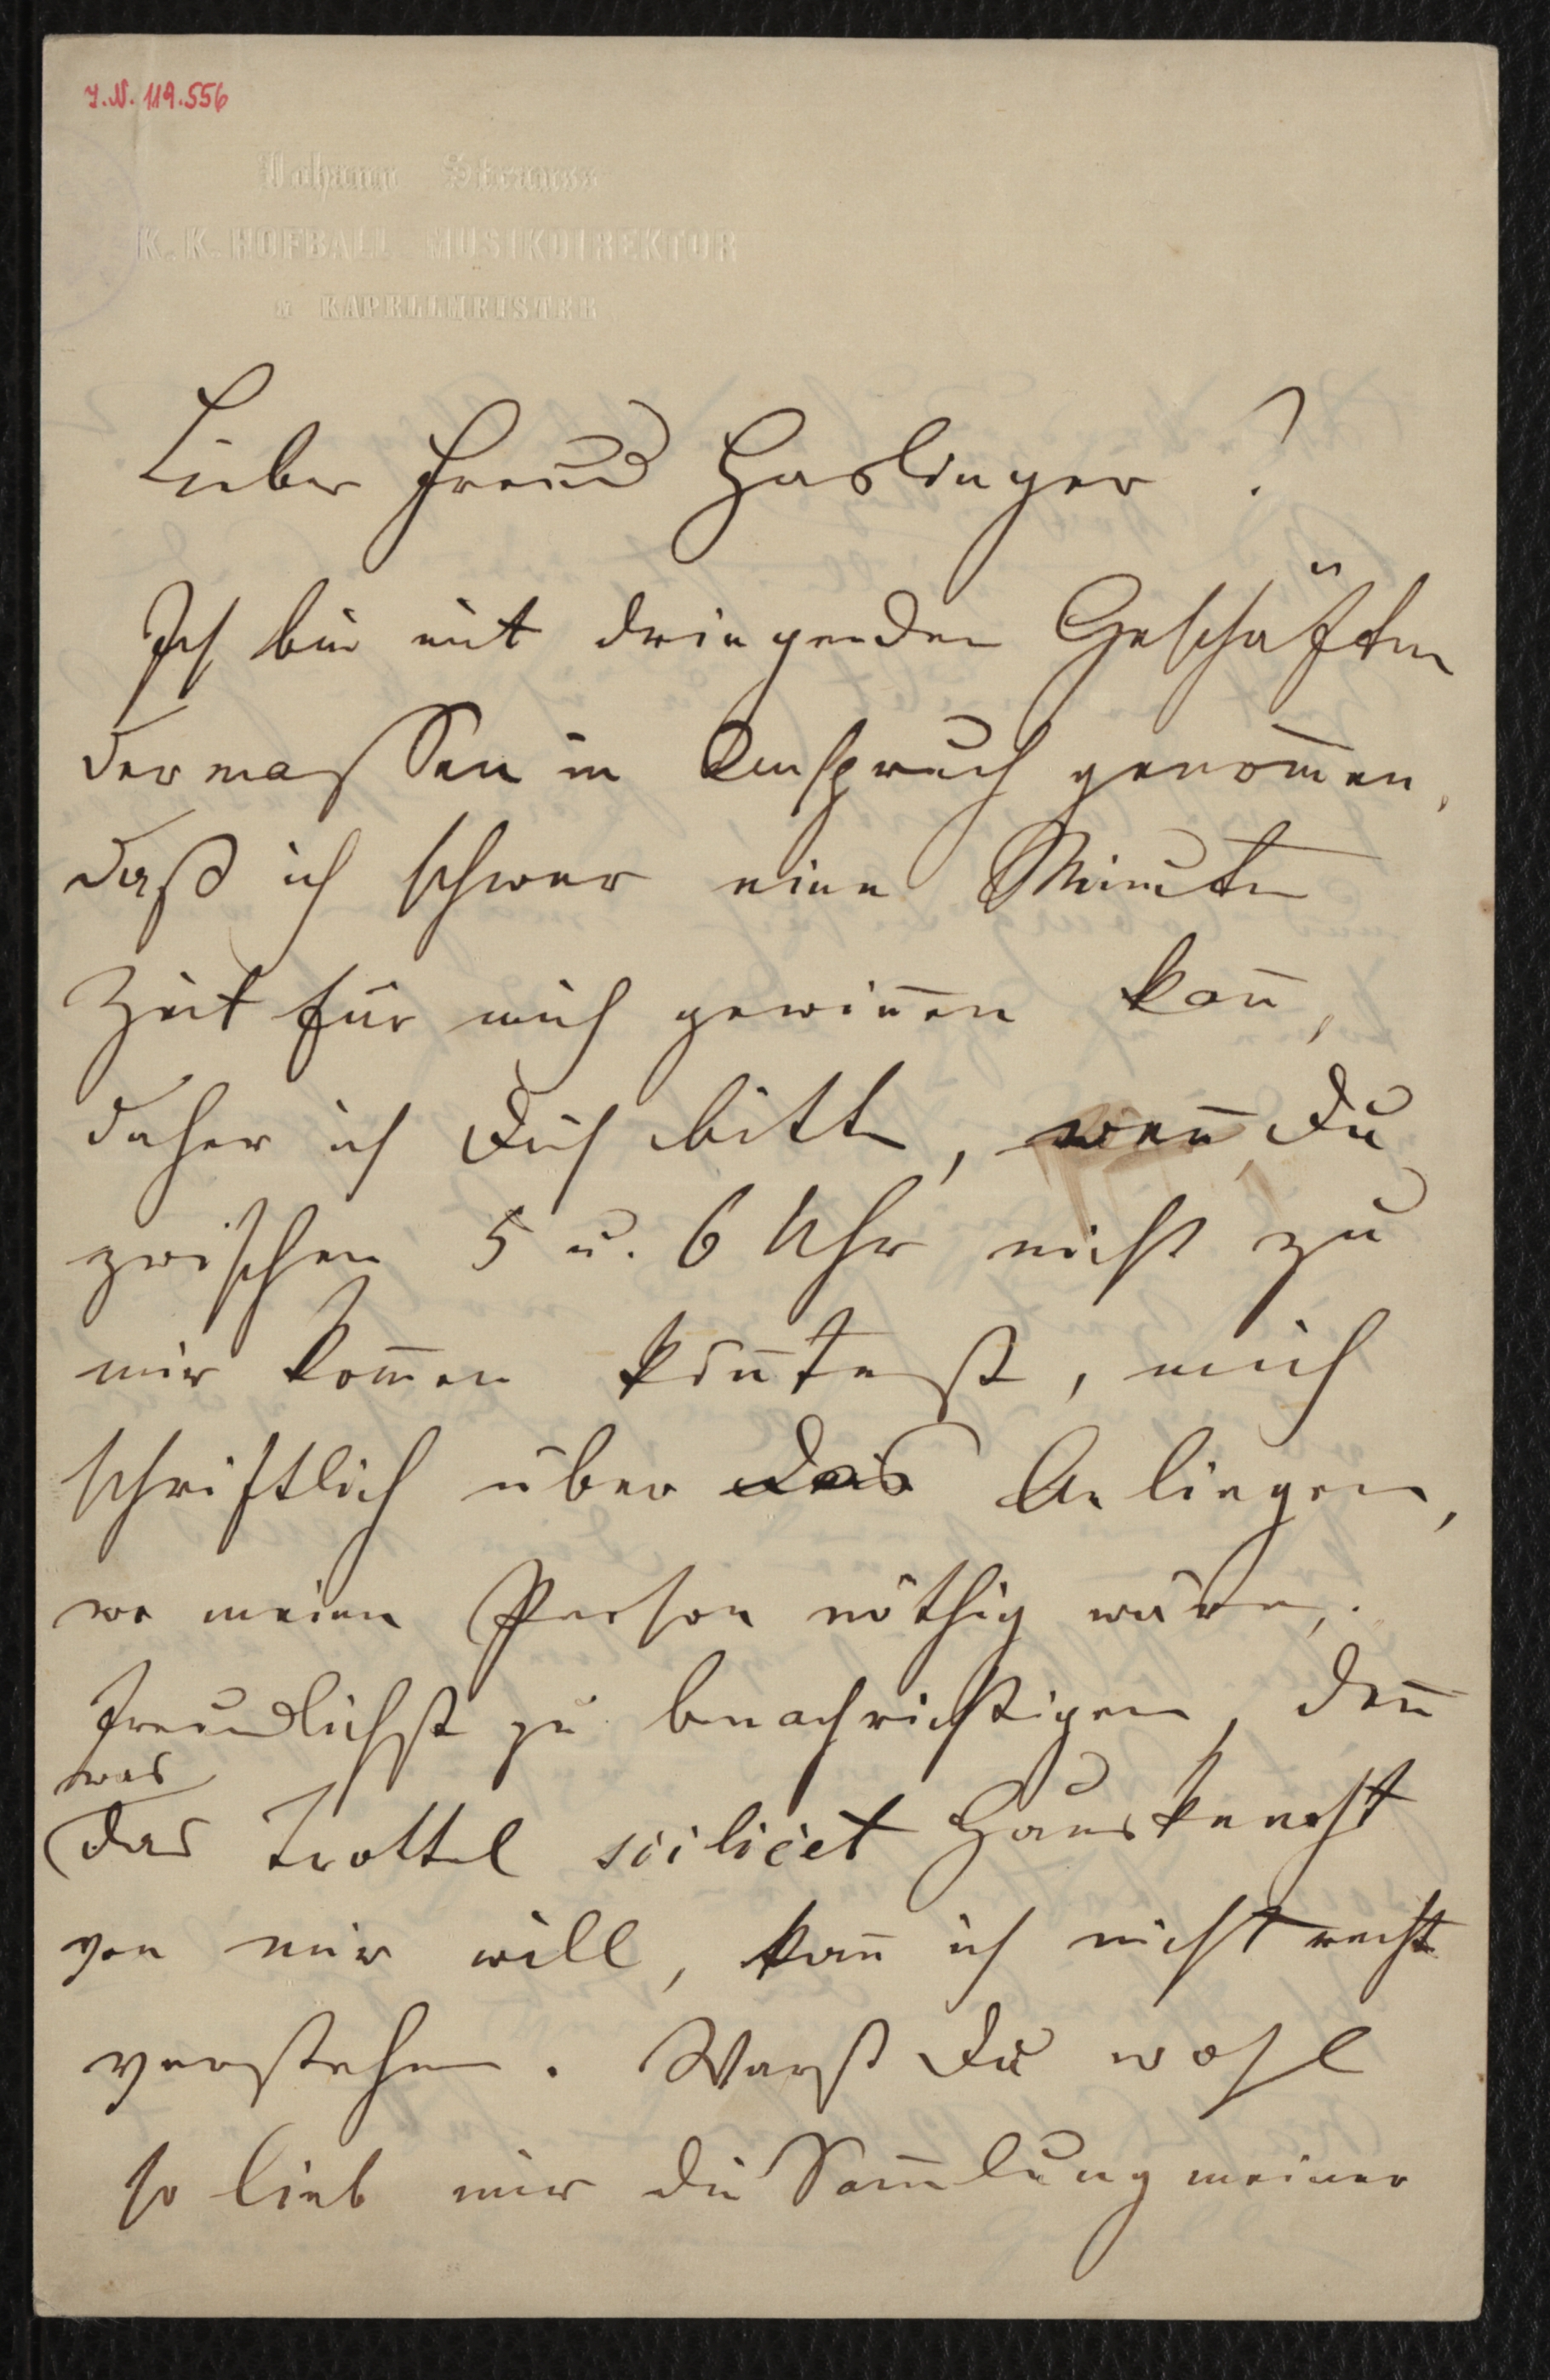 J.N. 119.556
Johann Strauss
K. K. HOFBALL MUSIKDIREKTOR
u KAPELLMEISTER
Lieber Freund Haslinger?
Ich bin mit dringenden Geschäften
dermassen in Anspruch genom̅en,
daß ich schwer eine Minute
Zeit für mich gewin̅en kan̅,
daher ich Dich bitte, wen̅ Du
zwischen 5 u. 6 Uhr nicht zu
mir kom̅en kön̅test, mich
schriftlich über das Anliegen,
wo meine Person nöthig wäre,
freundlichst zu benachrichtigen, den̅
was
das Trottel scilicet Hausknecht
von mir will, kan̅ ich nicht recht
verstehen. Warst Du wohl
so lieb mir die Sam̅lung meiner